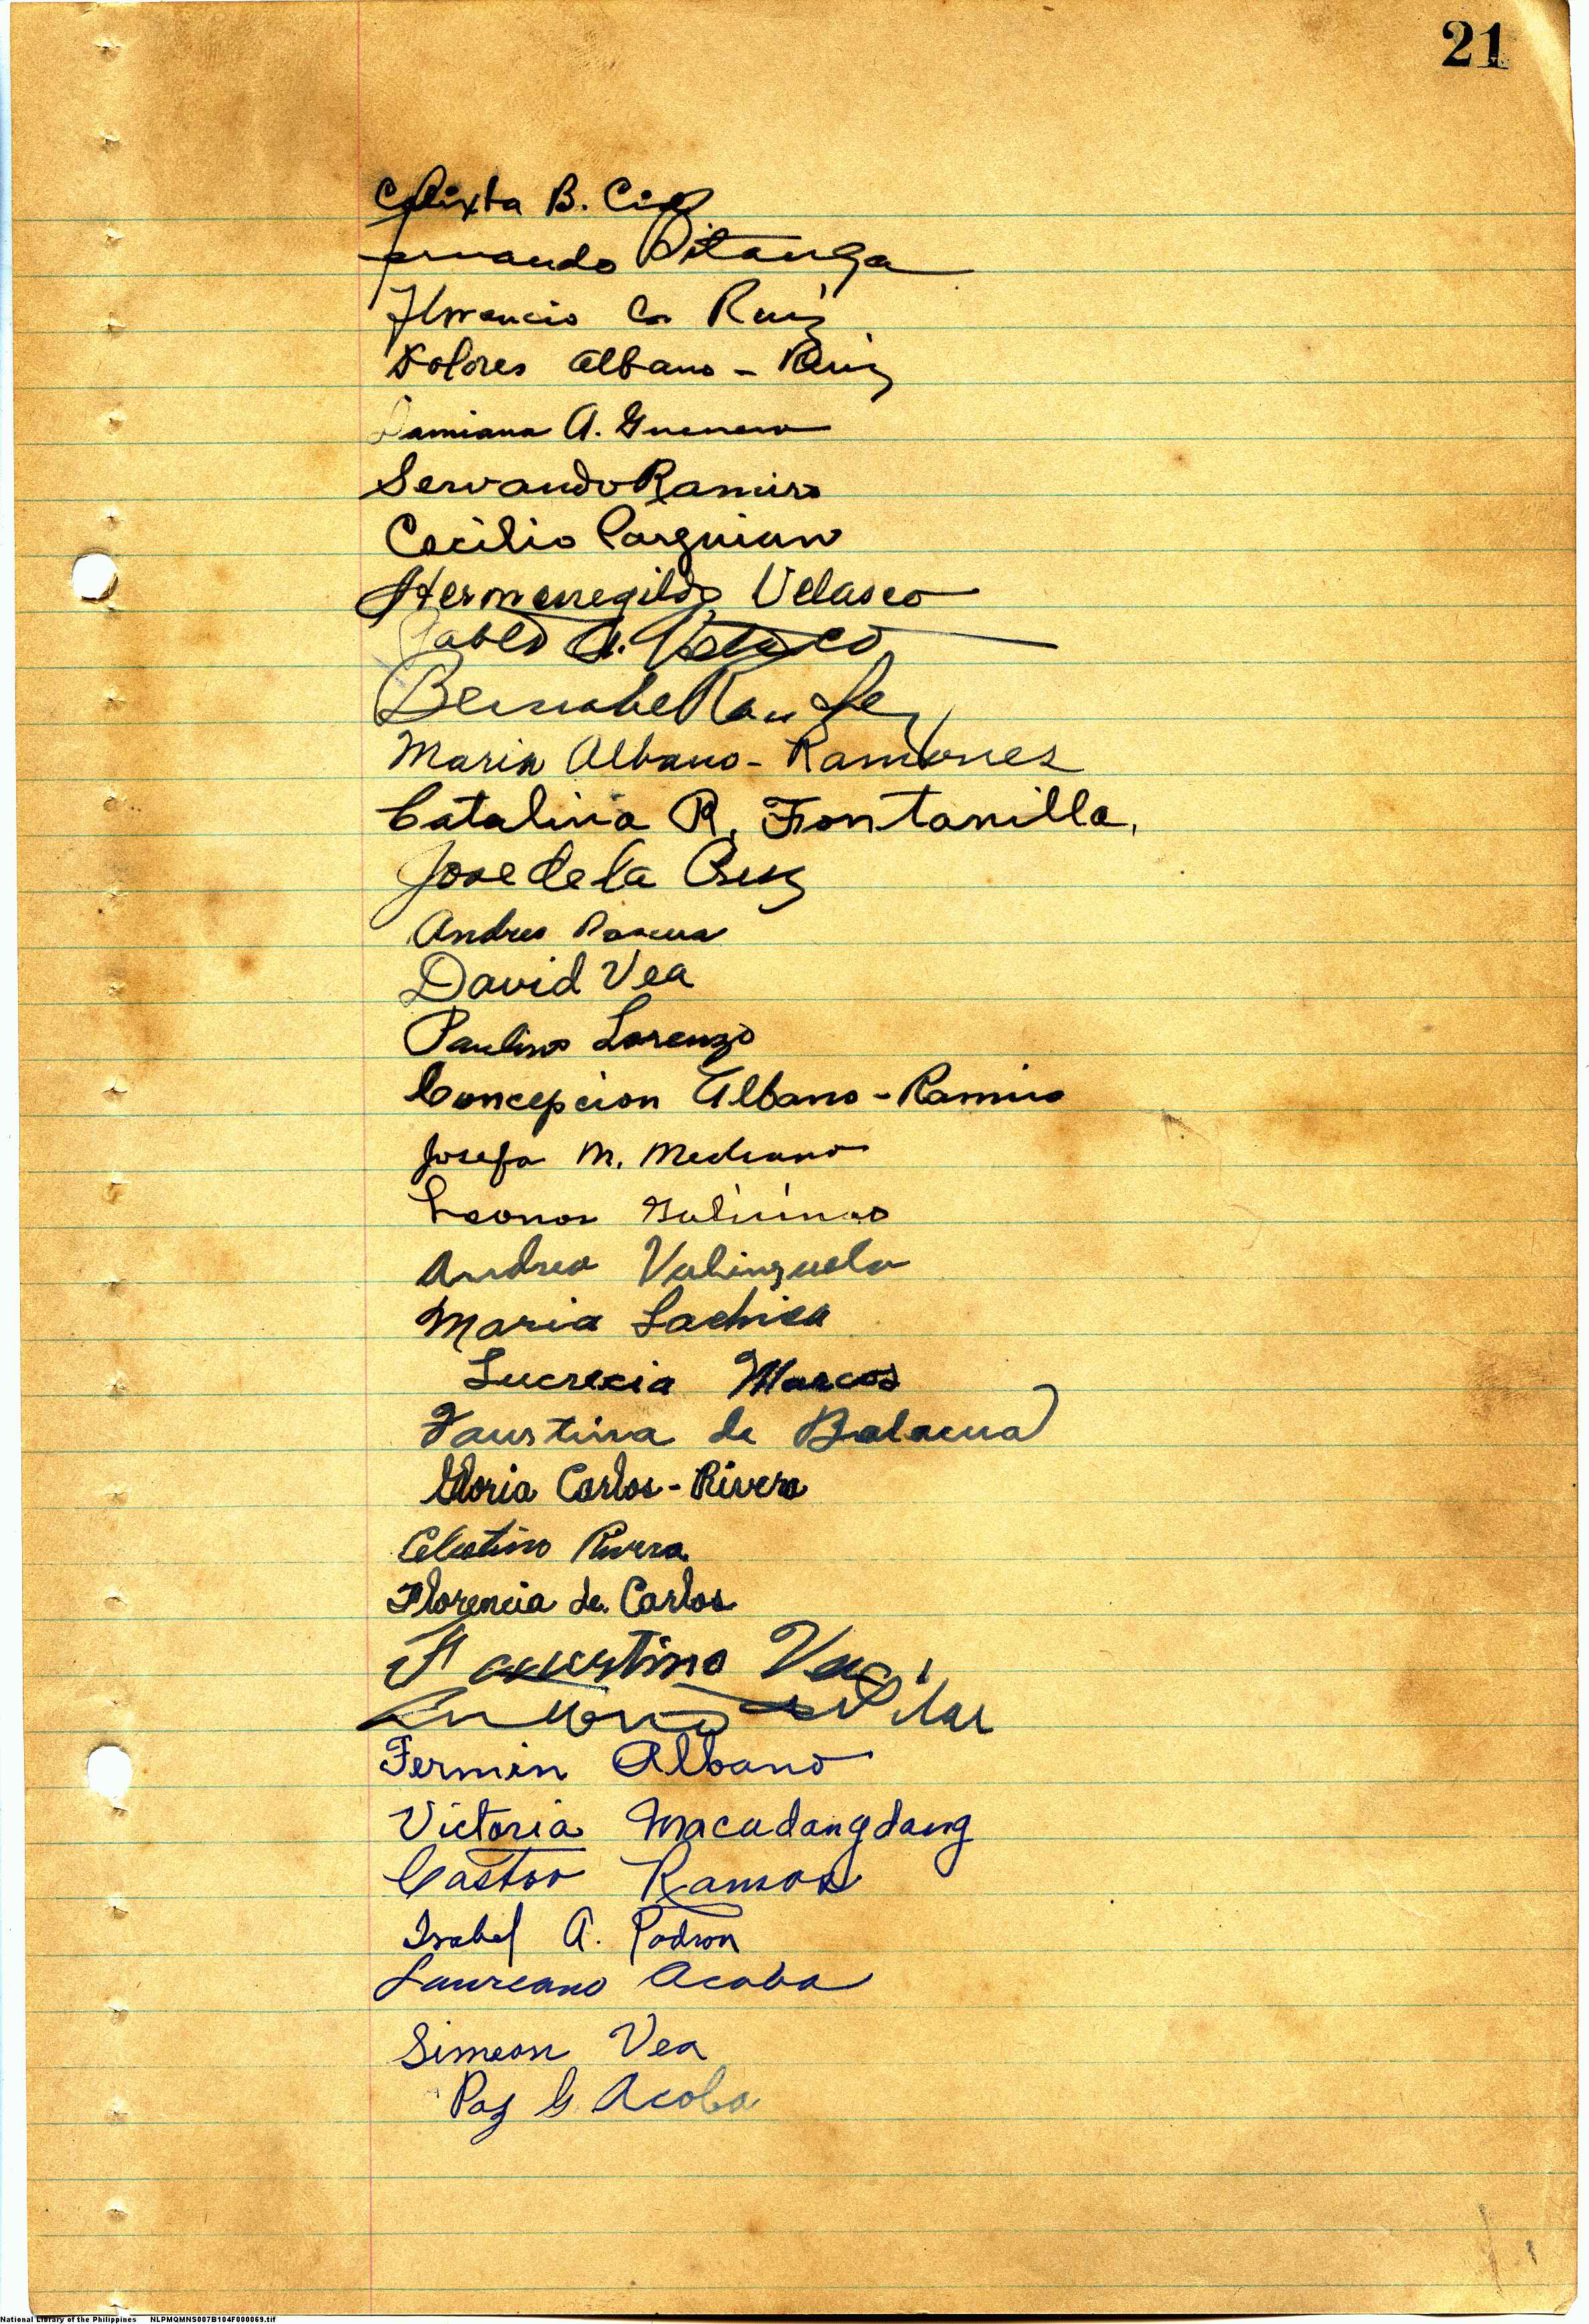 21
Calixta B. Cid
Fernando Pitanga
Florencio C. Ruiz
Dolores Albano - Ruiz
Damiana A. Guerrero
Servando Ramiro
Cecilio Parguian
Hermenegildo Velasco
Pablo A. Velasco
Bernabe
Maria Albano - Ramones
Catalina R. Fontanilla,
Jose de la Cruz
Andres Pascua
David Vea
Paulino Lorenzo
Concepcion Albano - Ramiro
Josefa M. Medrano
Leonor Galicinao
Andrea Valinzuela
Maria Lachica
Lucrecia Marcos
Faustina de Balacua
Gloria Carlos - Rivera
Celestino Rivera
Florencia de Carlos
Faustino Vea
Antonio del Pilar
Fermin Albano
Victoria Macadangdang
Castor Ramos
Isabel A. Padron
Laureano Acoba
Simeon Vea
Paz G Acoba
National Library of the Philippines NLPMQMNS007B104F000069.tif